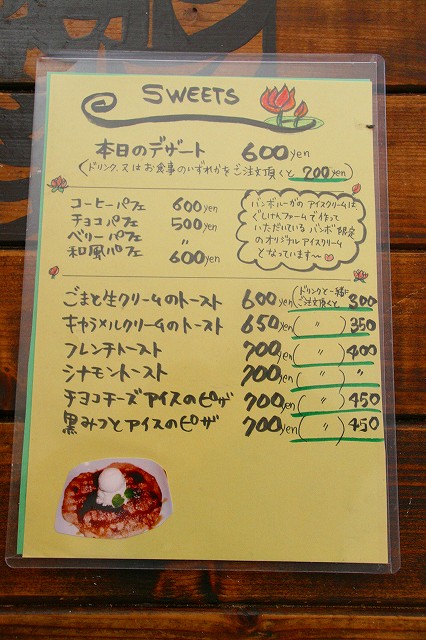 SWEETS
本日のデザート 600yen
(ドリンク、又はお食事のいずれかをご注文頂くと 700yen)
コーヒーパフェ 600yen
チョコパフェ 500yen
ベリーパフェ 〃
和風パフェ 600yen
バンボルーガのアイスクリームは
ぐしけんファームで作って
いただいている バンボ限定
のオリジナルアイスクリーム
となっています〜
ごまと生クリームのトースト 600yen (ドリンクと一緒にご注文頂くと 300)
キャラメルクリームのトースト 650yen (〃) 350
フレンチトースト 700yen (〃) 400
シナモントースト 700yen (〃) 〃
チョコチーズアイスのピザ 700yen (〃) 450
黒みつとアイスのピザ 700yen (〃) 450